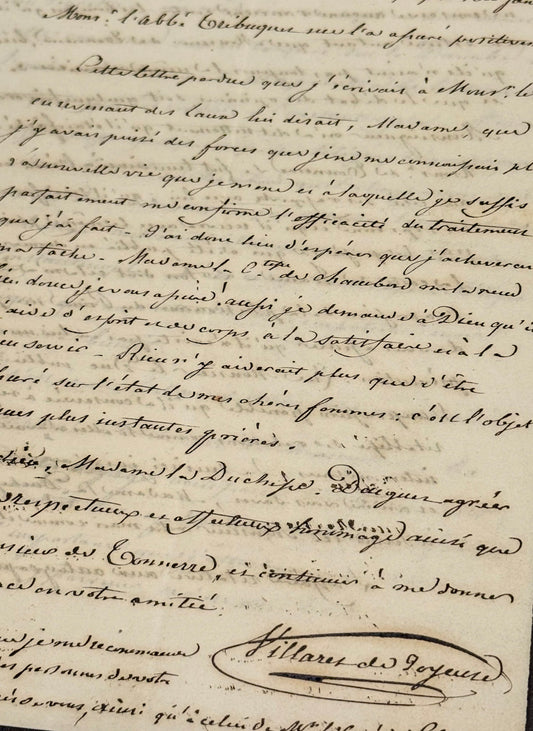 Mons.r l'abbé Tribuques me l'a assuré positivem
Cette lettre perdue que j'écrivais à Mons.r le
en revenant des Eaux lui disait, Madame, que
j'y avais puisé des forces que je ne me connaissais pl
nouvelle vie que je mene et à laquelle je suffis
parfaitement me confirme l'efficacité du traitement
que j'ai fait - J'ai donc lieu d'espérer que j'acheverai
ma tâche - Madame la C.tesse de Chambord me la rend
bien douce je vous assure! aussi je demande à Dieu qu'il
d'esprit et de corps à la satisfaire et à la
servir - Rien n'y aiderait plus que d'être
sur l'état de mes chères femmes: c'est l'objet
mes plus instantes prières.
Madame la Duchesse. Daignez agréer
respectueux et affectueux hommage ainsi que
Monsieur de Tonnerre, et continuer à me donner
place en votre amitié.
que je me recommande
personnes de votre
Villaret de Joyeuse
de vous, ainsi qu'à celui de M.me